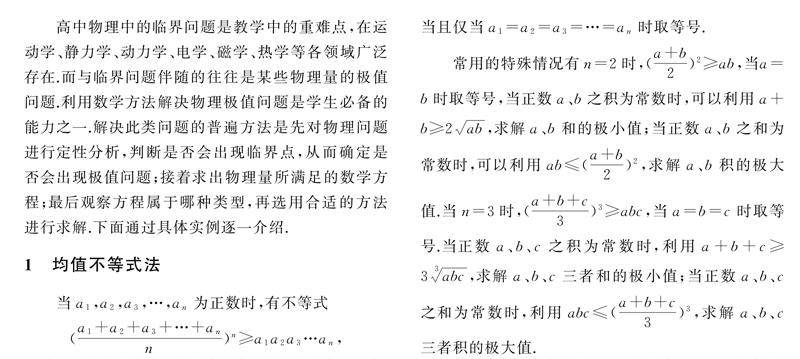 高中物理中的临界问题是教学中的重难点,在运
动学、静力学、动力学、电学、磁学、热学等各领域广泛
存在.而与临界问题伴随的往往是某些物理量的极值
问题.利用数学方法解决物理极值问题是学生必备的
能力之一.解决此类问题的普遍方法是先对物理问题
进行定性分析,判断是否会出现临界点,从而确定是
否会出现极值问题;接着求出物理量所满足的数学方
程;最后观察方程属于哪种类型,再选用合适的方法
进行求解.下面通过具体实例逐一介绍.
1 均值不等式法
当 a₁,a₂,a₃,…,aₙ 为正数时,有不等式
((a₁+a₂+a₃+…+aₙ)/n)ⁿ≥a₁a₂a₃…aₙ,
当且仅当 a₁=a₂=a₃=…=aₙ 时取等号.
常用的特殊情况有 n=2 时,((a+b)/2)²≥ab,当a=
b 时取等号,当正数 a、b 之积为常数时,可以利用 a+
b≥2√ab,求解 a、b 和的极小值;当正数 a、b 之和为
常数时,可以利用 ab≤((a+b)/2)²,求解 a、b 积的极大
值.当 n=3 时,((a+b+c)/3)³≥abc,当 a=b=c 时取等
号.当正数 a、b、c 之积为常数时,利用 a+b+c≥
3∛abc,求解 a、b、c 三者和的极小值;当正数 a、b、c
之和为常数时,利用 abc≤((a+b+c)/3)³,求解 a、b、c
三者积的极大值.